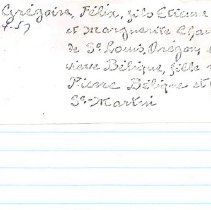 Grégoire, Félix, fils Etienne
et Marguerite
de St. Louis, Orégon,
Bélique, fille
Pierre Bélique et
St-Martin